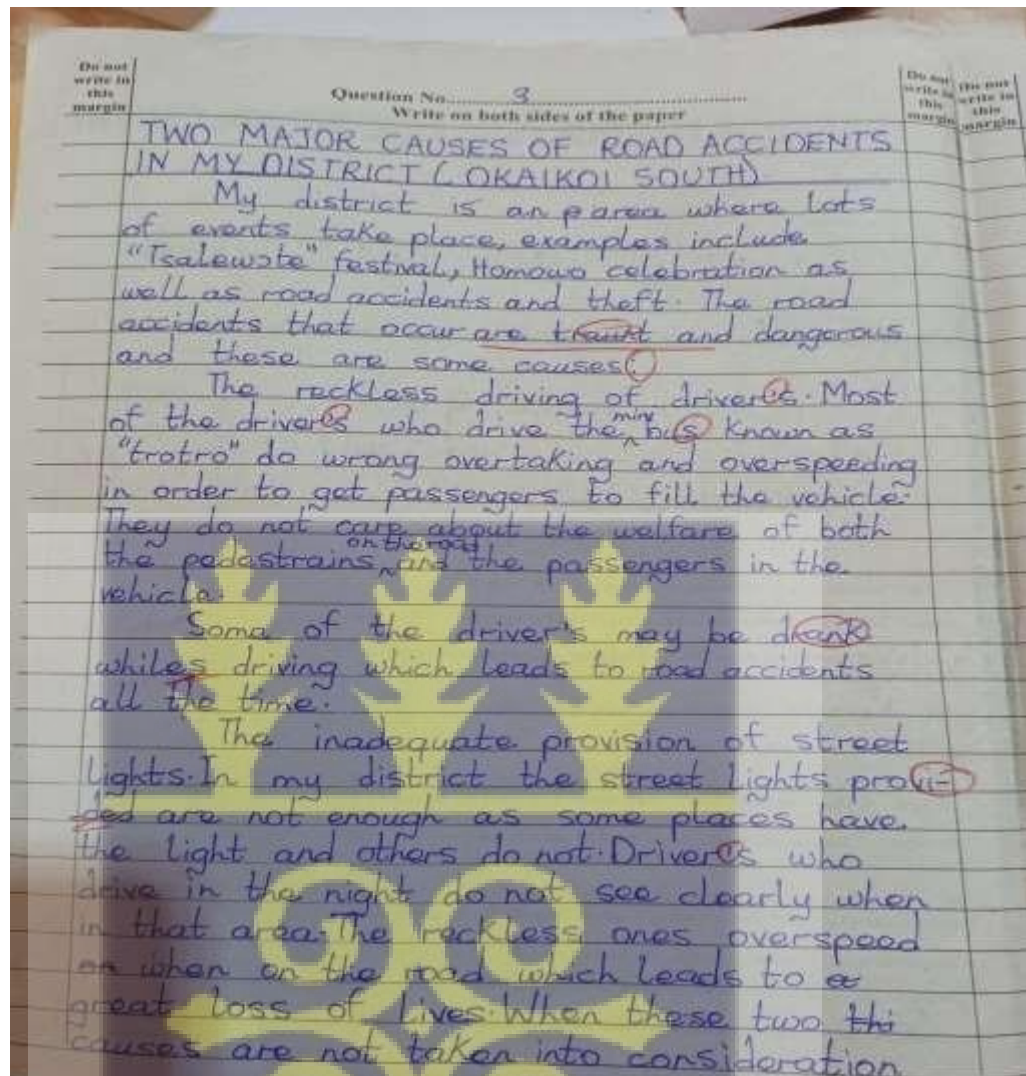 Do not
write in
this
margin
Question No. 3
Write on both sides of the paper
Do not
write in
this
margin
Do not
write in
this
margin
TWO MAJOR CAUSES OF ROAD ACCIDENTS
IN MY DISTRICT (OKAIKOI SOUTH)
My district is an area where lots
of events take place, examples include
"Tsalewote" festival, Homowo celebration as
well as road accidents and theft. The road
accidents that occur are and dangerous
and these are some causes:
The reckless driving of driver's. Most
of the driver's who drive the mini bus known as
"trotro" do wrong overtaking and overspeeding
in order to get passengers to fill the vehicle.
They do not care about the welfare of both
the pedestrains on the road and the passengers in the
vehicle.
Some of the driver's may be drank
whiles driving which leads to road accidents
all the time.
The inadequate provision of street
lights. In my district the street lights provi-
ded are not enough as some places have
the light and others do not. Driver's who
drive in the night do not see clearly when
in that area. The reckless ones overspeed
when on the road which leads to a
great loss of lives. When these two thi
causes are not taken into consideration